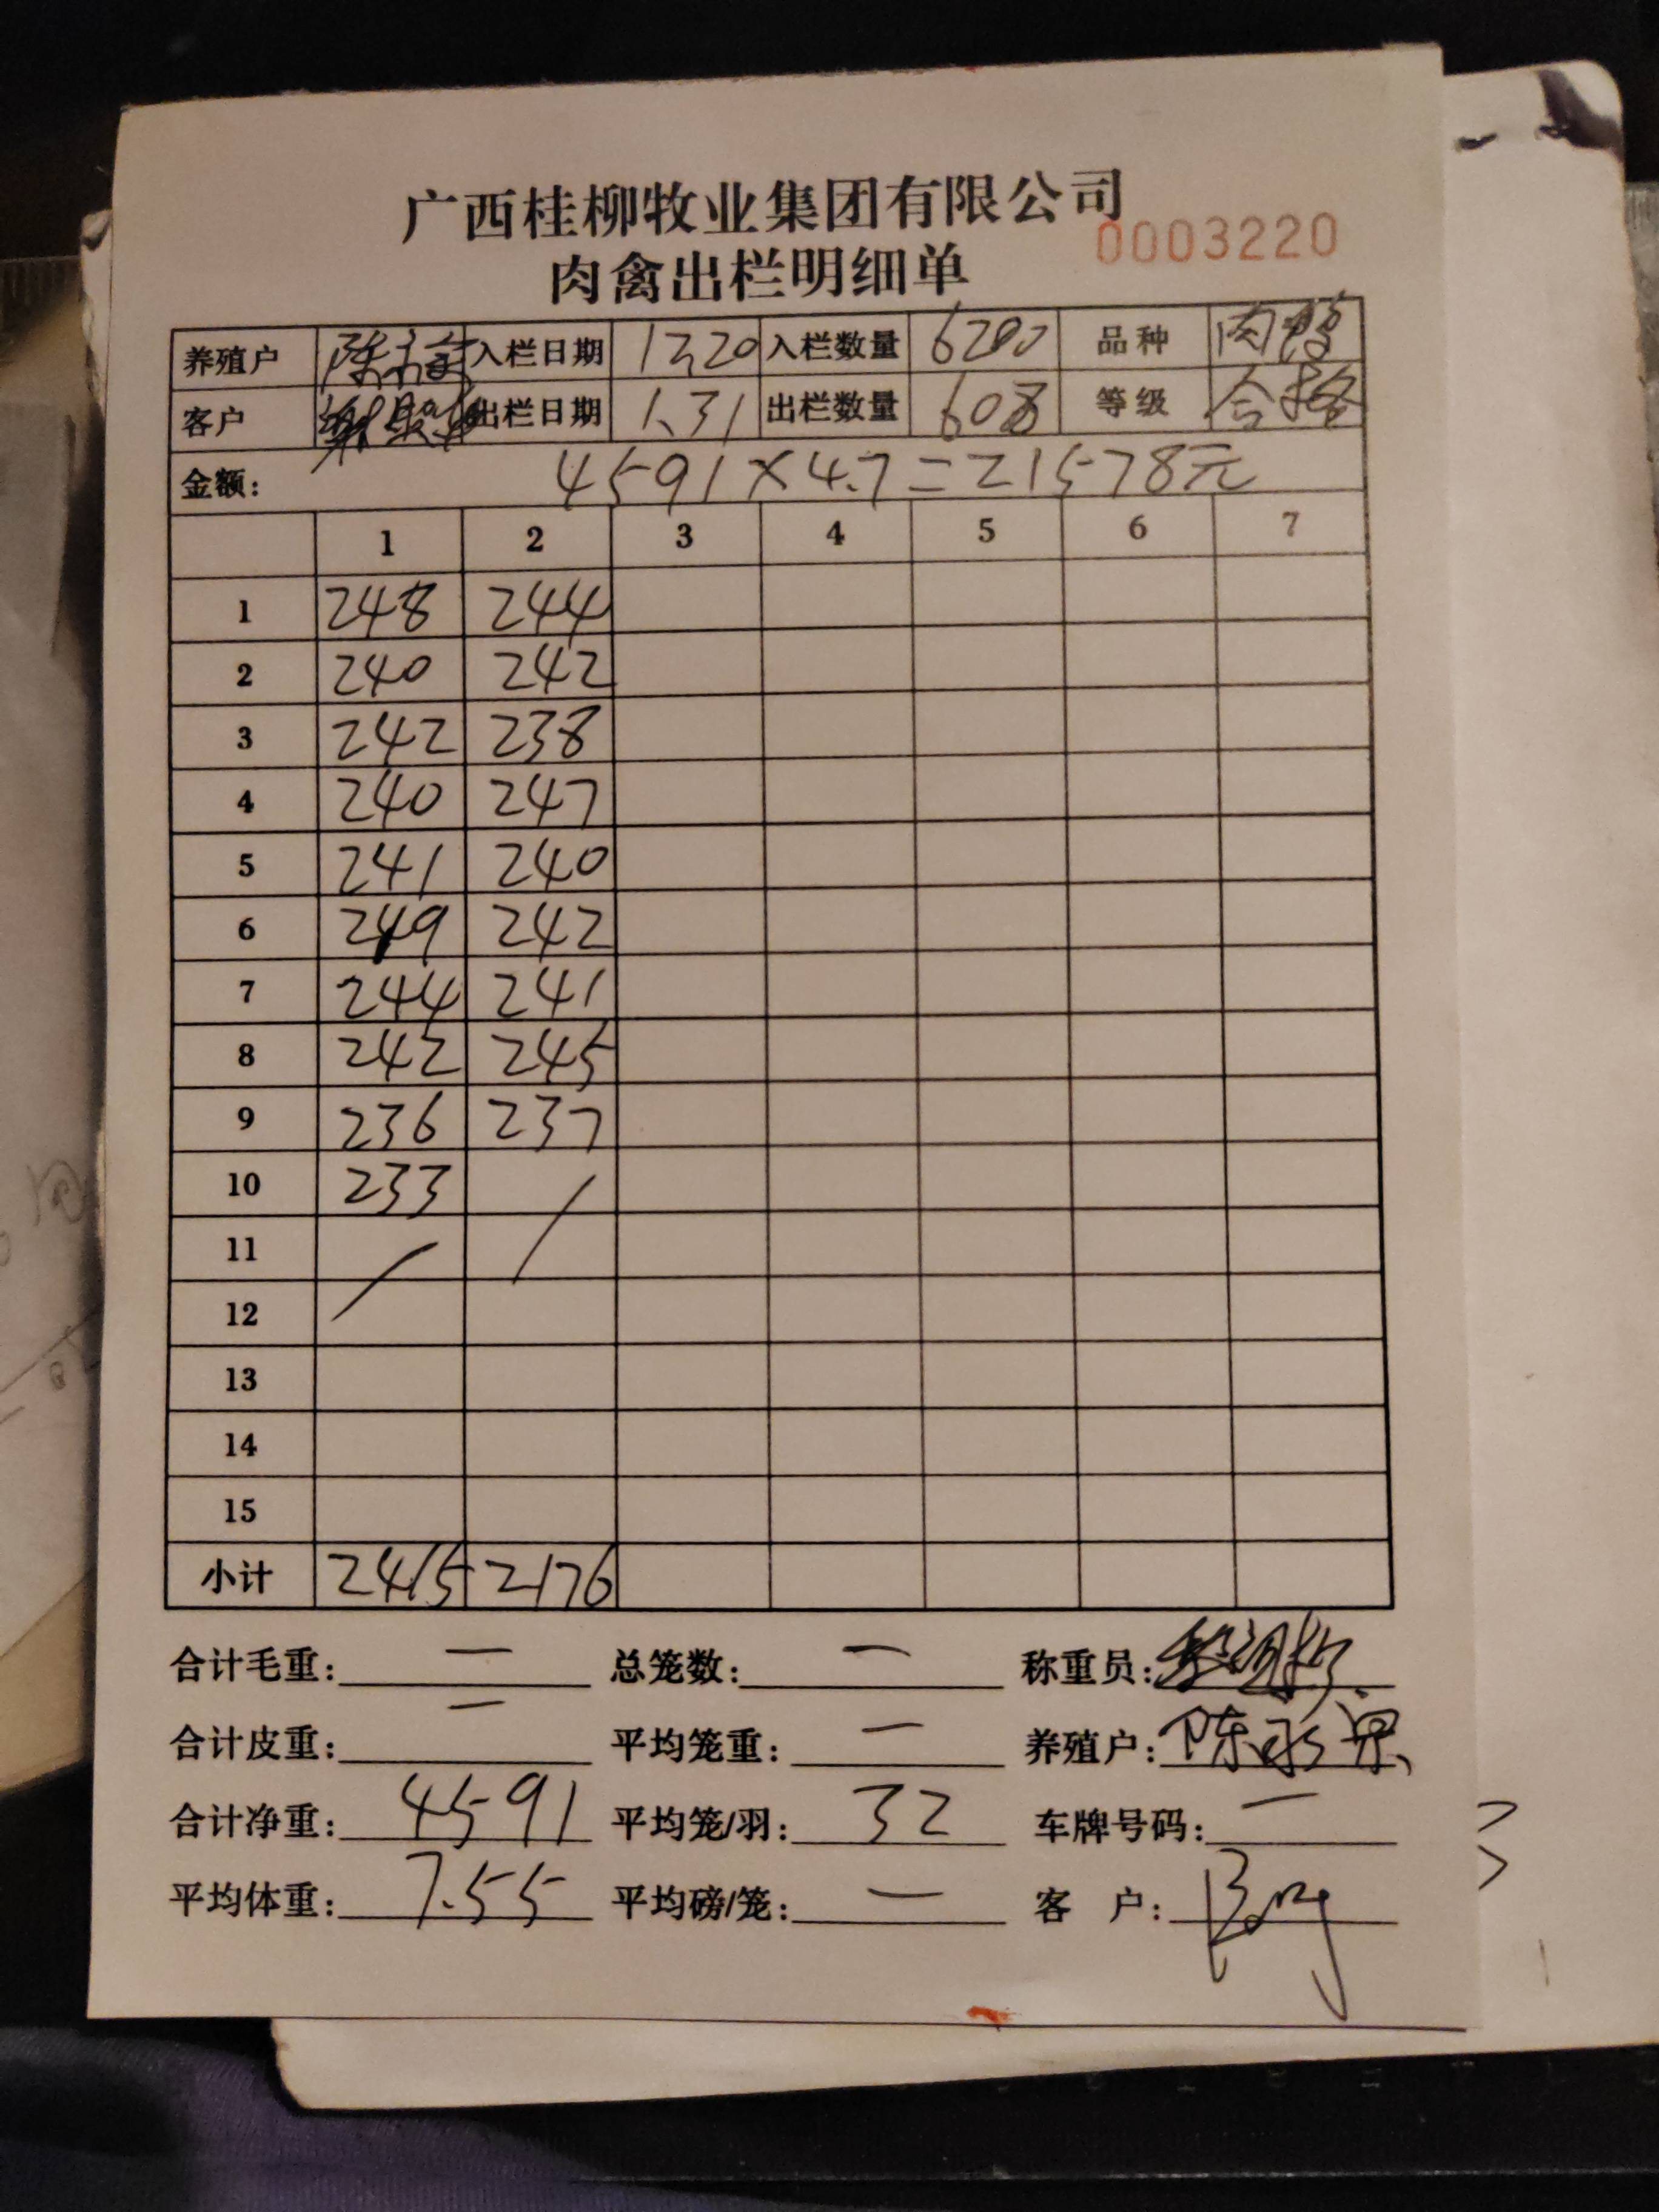 广西桂柳牧业集团有限公司
0003220
肉禽出栏明细单
养殖户 入栏日期 入栏数量 6200 品种 肉鸭
客户 出栏日期 1.31 出栏数量 608 等级 合格
金额: 4591×4.7=21578元
1 2 3 4 5 6 7
1 248 244
2 240 242
3 242 238
4 240 247
5 241 240
6 249 242
7 244 241
8 242 245
9 236 237
10 233
11
12
13
14
15
小计 2415 2176
合计毛重: — 总笼数: — 称重员:
合计皮重: — 平均笼重: — 养殖户:
合计净重: 4591 平均笼/羽: 32 车牌号码: —
平均体重: 7.55 平均磅/笼: — 客 户: